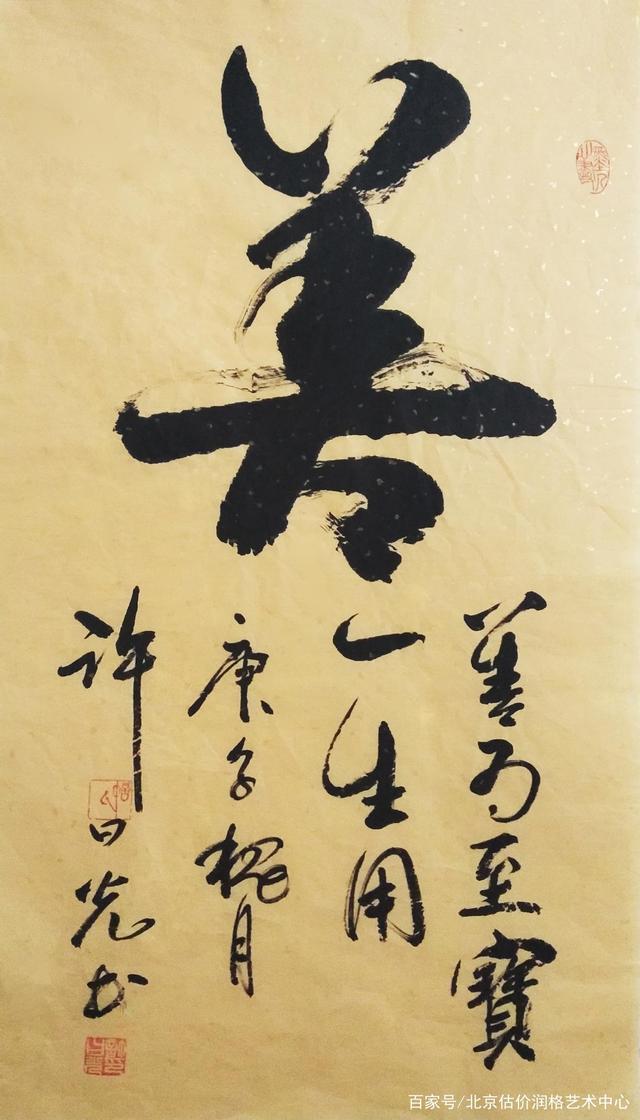 善
善为至寶
一生用
庚子槐月
许日光书
百家号/北京估价润格艺术中心